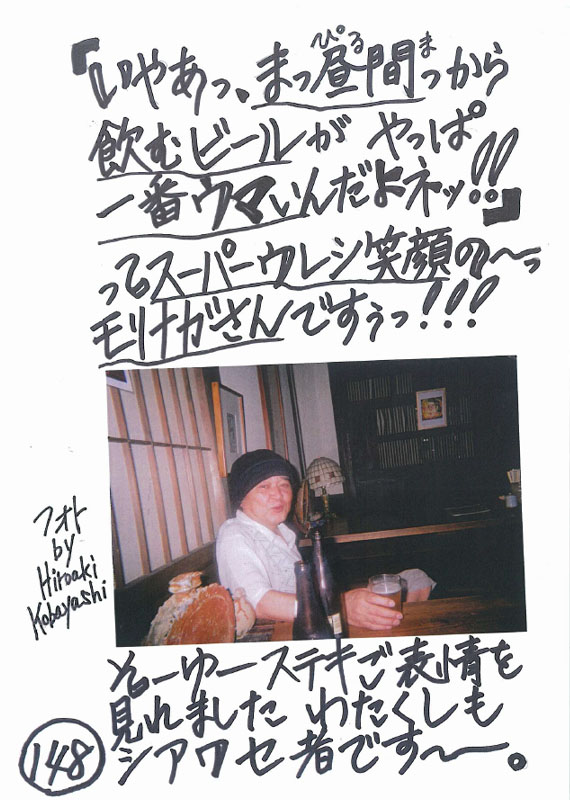 『いやあっ、まっ昼間っから
ぴるま
飲むビールが やっぱ
一番ウマいんだよネッ!!』
ってスーパーウレシ笑顔の〜っ
モリナガさんですぅっ!!!
フォト
by
Hiroaki
Kobayashi
そーゆーステキご表情を
見れました わたくしも
シアワセ者です〜。
148